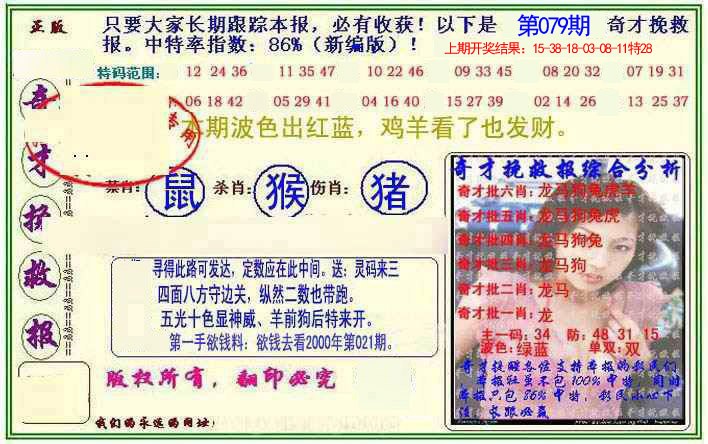 正版
只要大家长期跟踪本报，必有收获！以下是 第079期 奇才挽救
报。中特率指数：86%（新编版）！
上期开奖结果：15-38-18-03-08-11特28
特码范围：
12 24 36
11 35 47
10 22 46
09 33 45
08 20 32
07 19 31
06 18 42
05 29 41
04 16 40
15 27 39
02 14 26
13 25 37
奇
才
救
报
专用
本期波色出红蓝，鸡羊看了也发财。
禁肖：鼠 杀肖：猴 伤肖：猪
寻得此路可发达，定数应在此中间。送：灵码来三
四面八方守边关，纵然二数也带跑。
五光十色显神威、羊前狗后特来开。
第一手欲钱料：欲钱去看2000年第021期。
版权所有，翻印必究
我们的永远的网址：
奇才挽救报综合分析
奇才批六肖：龙马狗兔虎羊
奇才批五肖：龙马狗兔虎
奇才批四肖：龙马狗兔
奇才批三肖：龙马狗
奇才批二肖：龙马
奇才批一肖：龙
主一码：34 防：48 31 15
波色：绿蓝 单双：双
奇才提醒各位支持本报的彩民们
本报社虽不包100%中特，同时
本报只包86%中特，彩民小心下
注，长跟必赢